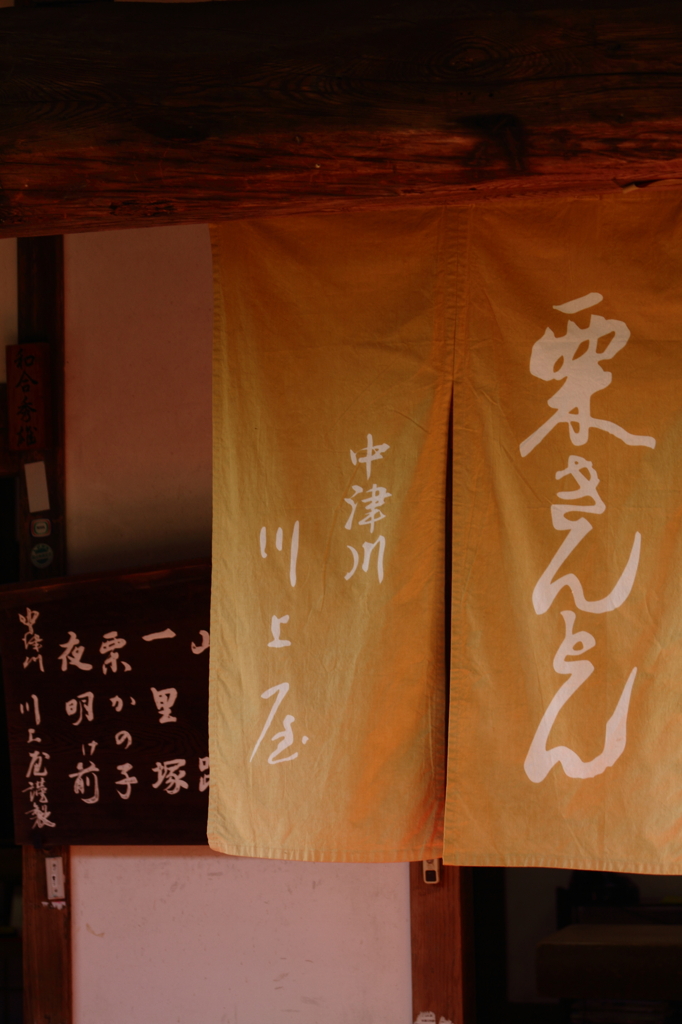 栗きんとん
中津川
川上屋
一里塚
栗かの子
夜明け前
中津川 川上屋謹製